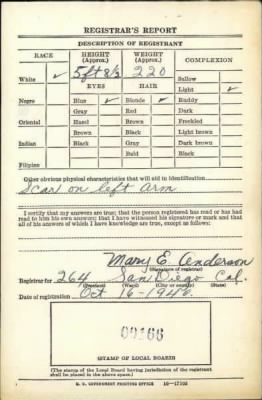 REGISTRAR'S REPORT
DESCRIPTION OF REGISTRANT
RACE HEIGHT (Approx.) WEIGHT (Approx.) COMPLEXION
White ✓ 5ft 8½ 220 Sallow
EYES HAIR Light ✓
Negro Blue ✓ Blonde ✓ Ruddy
Gray Red Dark
Oriental Hazel Brown Freckled
Brown Black Light brown
Indian Black Gray Dark brown
Bald Black
Filipino
Other obvious physical characteristics that will aid in identification
Scar on left arm
I certify that my answers are true; that the person registered has read or has had
read to him his own answers; that I have witnessed his signature or mark and that
all of his answers of which I have knowledge are true, except as follows:
Mary E. Anderson
(Signature of registrar)
Registrar for 264 San Diego Cal.
(Precinct) (Ward) (City or county) (State)
Date of registration Oct 16-1940.
STAMP OF LOCAL BOARD
(The stamp of the Local Board having jurisdiction of the registrant
shall be placed in the above space.)
U. S. GOVERNMENT PRINTING OFFICE 16—17105